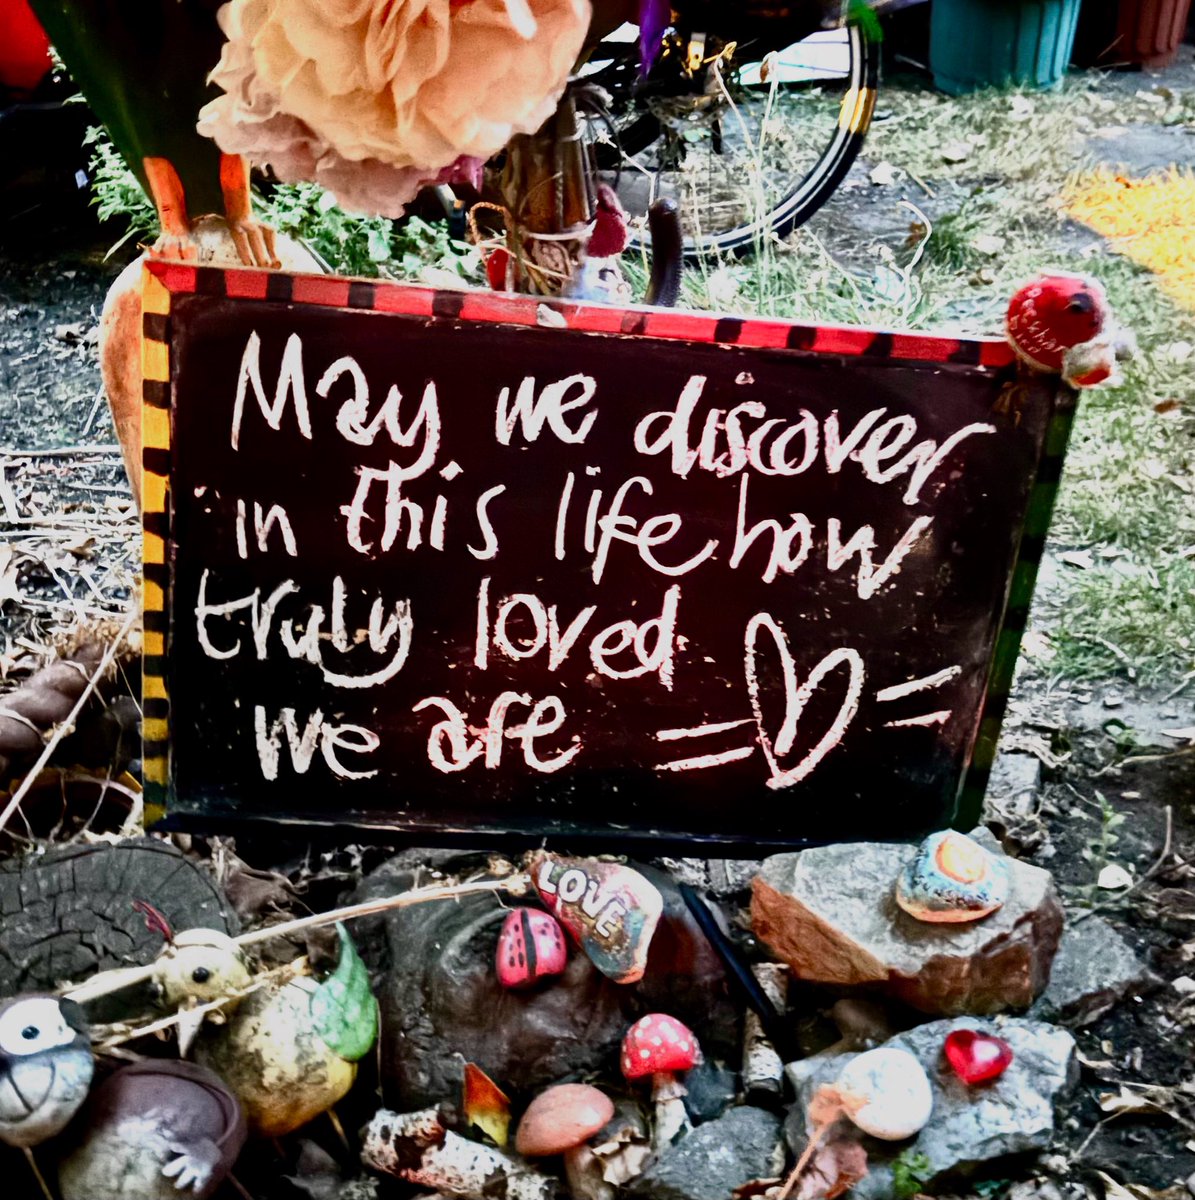 May we discover
in this life how
truly loved
we are
LOVE